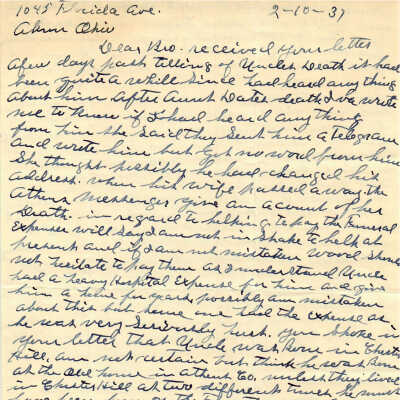 1045 Ave. 2-10-37
Akron Ohio
Dear Bro. received your letter
a few days past telling of Uncles Death it had
been quite a while since had heard any thing
about him after Aunt death Iva wrote
me to know if I had heard any thing
from him she said they sent him a telegram
and wrote him but got no word from him
She thought possibly he had changed his
address. when his wife passed away the
Athens Messenger give an account of her
Death. in regard to helping to pay the Funeral
Expenses will say I am not in shape to help at
present and if I am not mistaken Wood should
not hesitate to pay them as I understand Uncle
had a heavy Hospital Expense for him and give
him a home for years possibly am mistaken
about this but some one had the expense as
he was very seriously hurt. you spoke in
your letter that Uncle was Born in Chester
Hill. am not certain but think he was Born
at the old home in Athens Co, unless they lived
in Chester Hill at two different times he must
have been